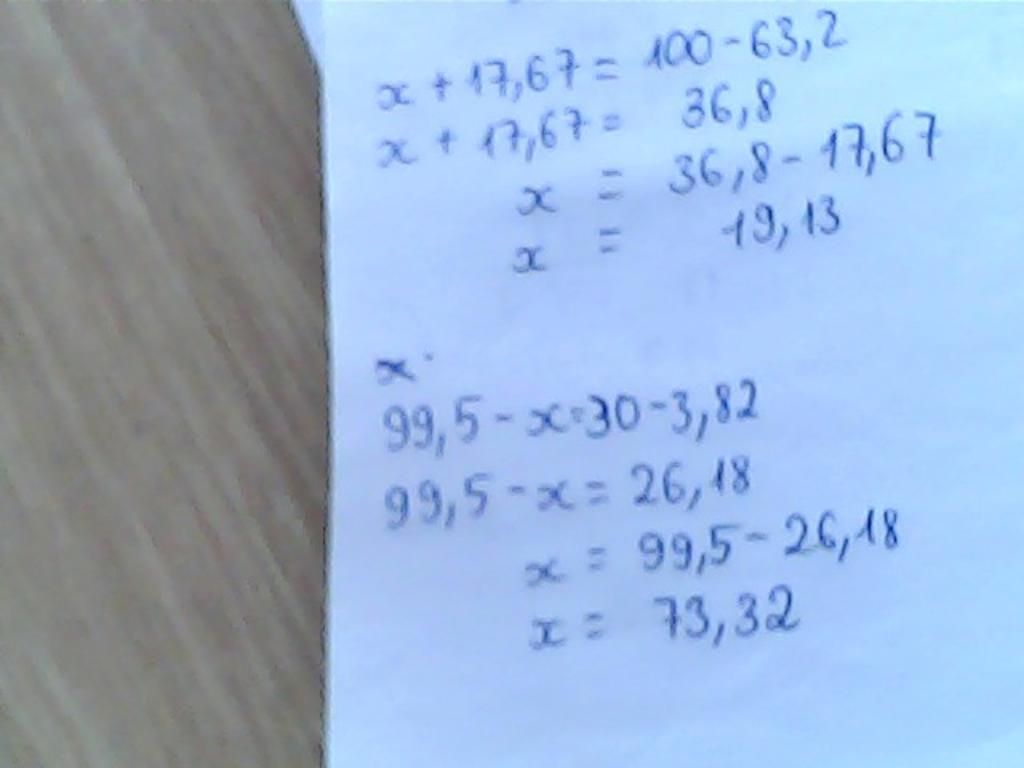 x + 17,67 = 100 - 63,2
x + 17,67 = 36,8
x = 36,8 - 17,67
x = 19,13
x
99,5 - x = 30 - 3,82
99,5 - x = 26,18
x = 99,5 - 26,18
x = 73,32